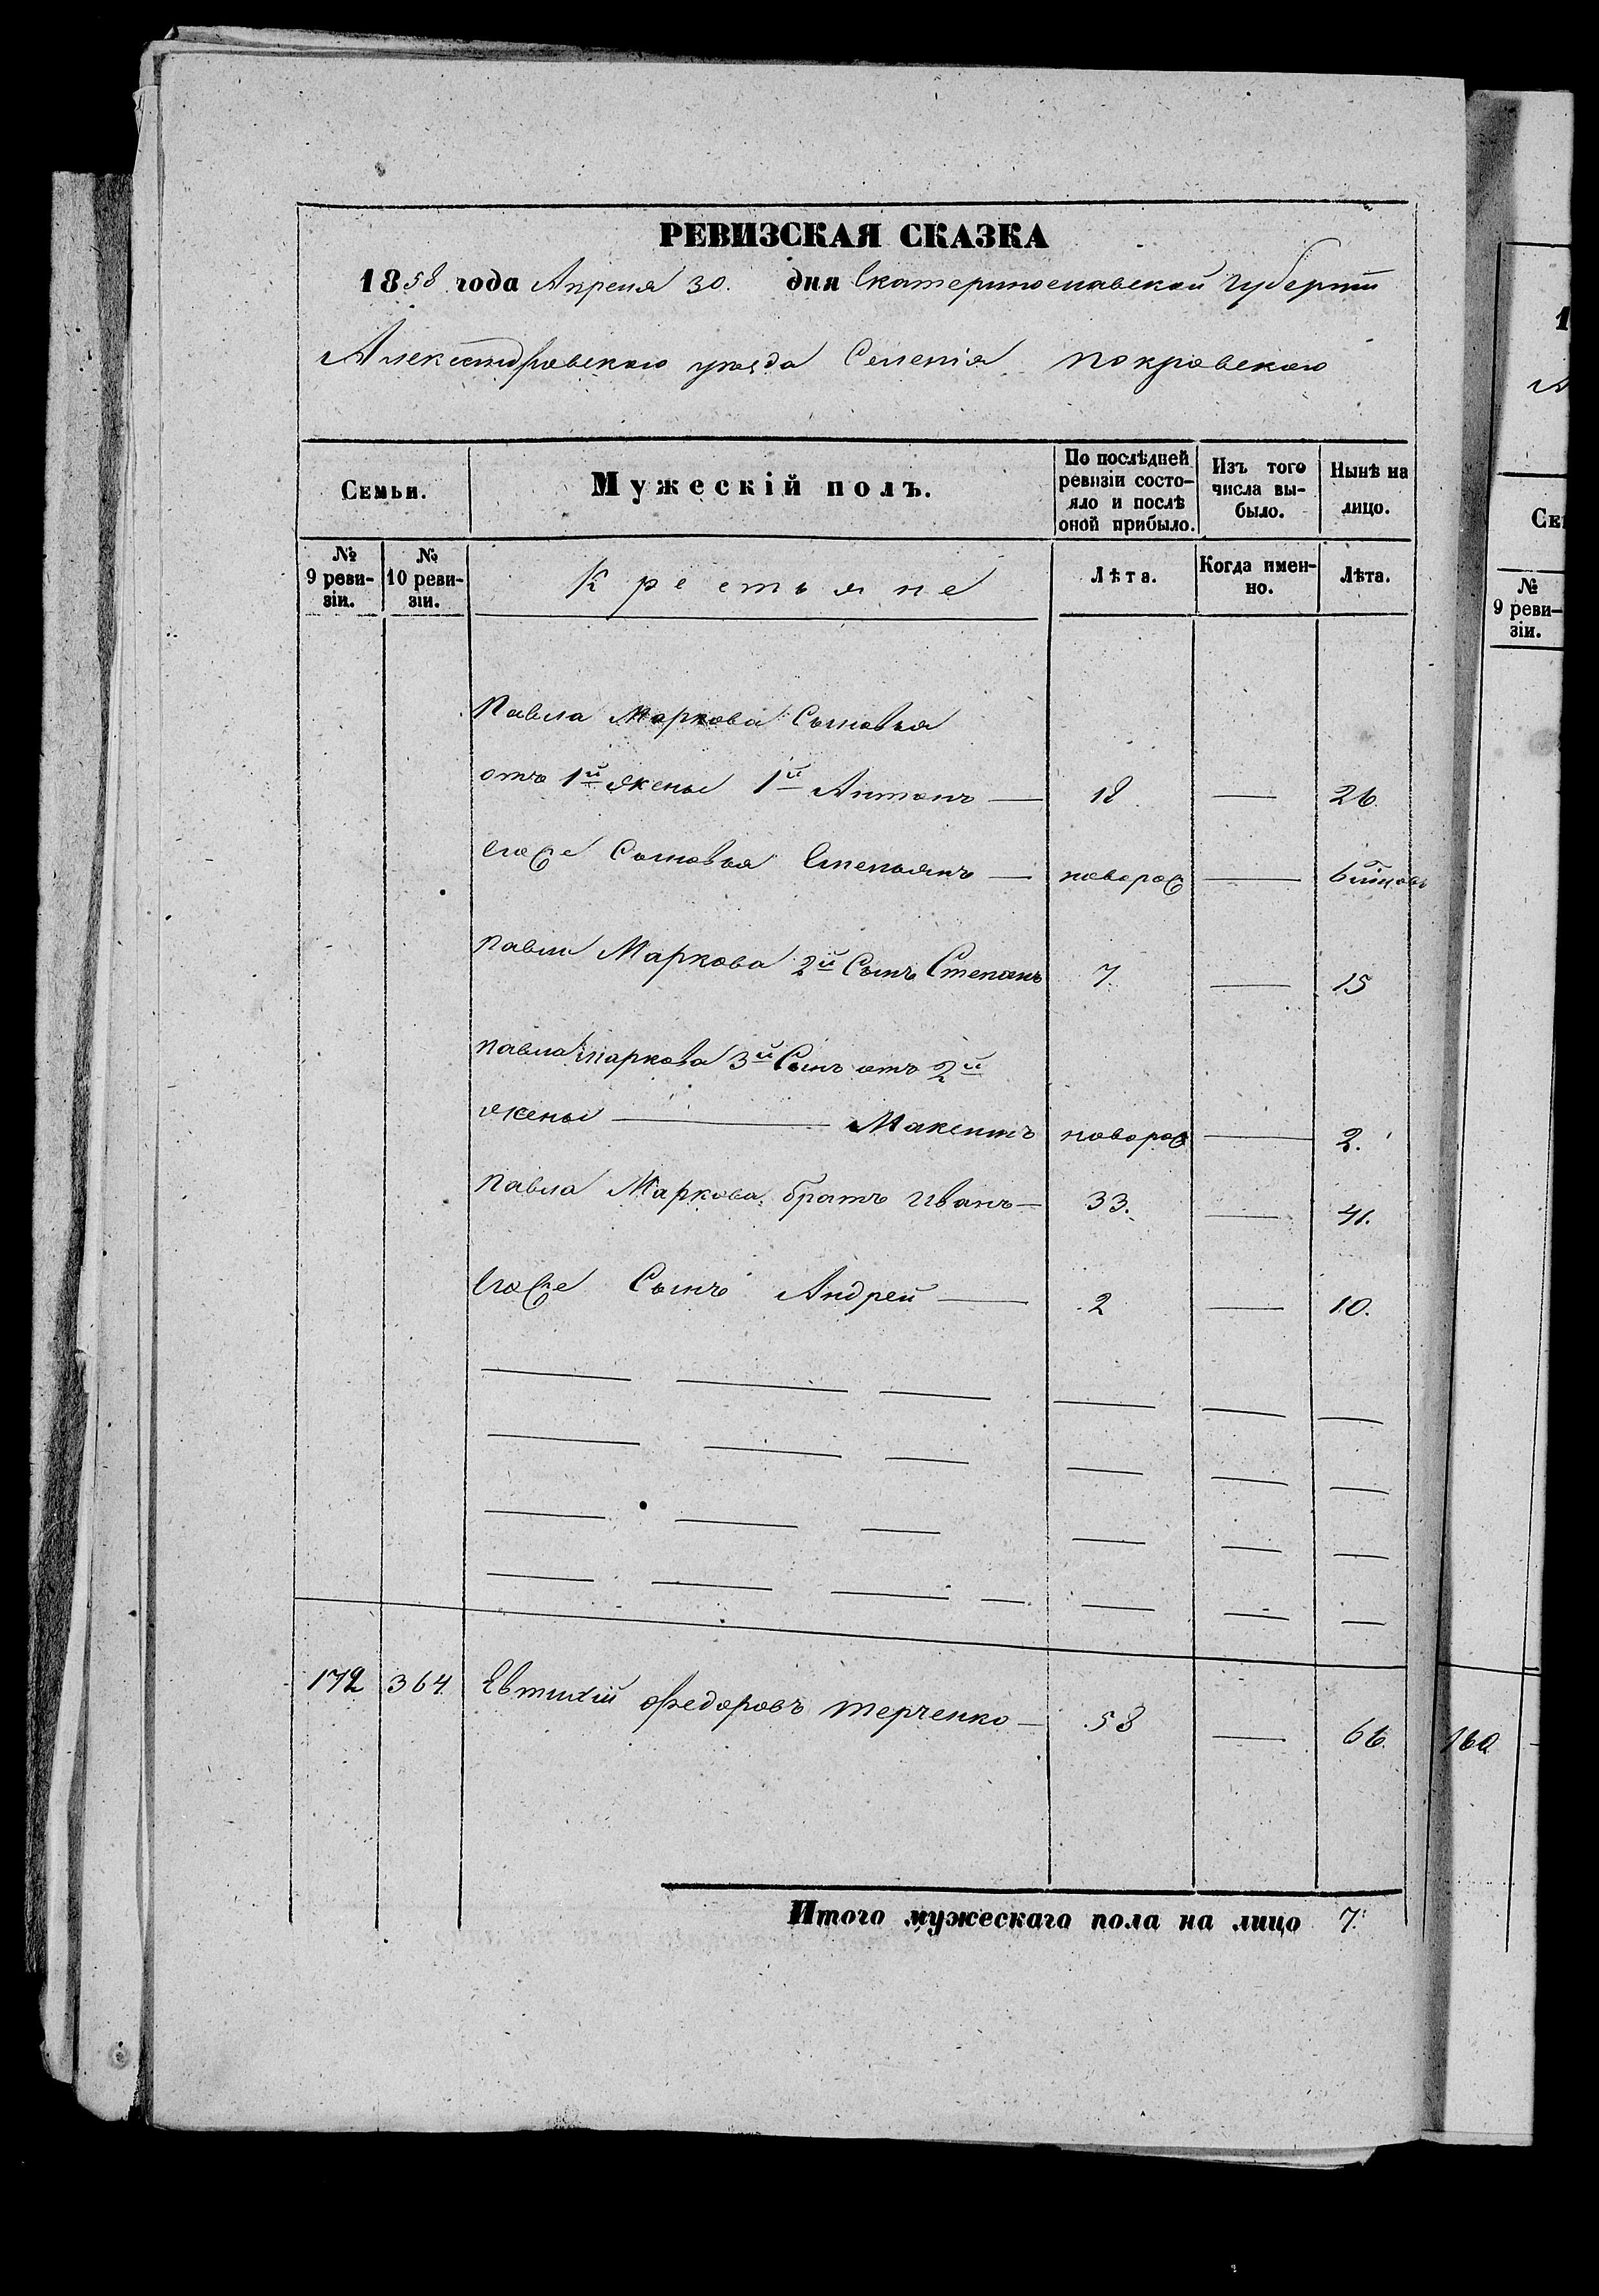 РЕВИЗСКАЯ СКАЗКА
1858 года Апреля 30. дня Екатеринославской губерніи
Александровскаго уезда Селенія покровскаго
Семьи. Мужескій полъ. По послѣдней ревизіи состояло и послѣ оной прибыло. Изъ того числа выбыло. Нынѣ на лицо.
№ 9 ревизіи. № 10 ревизіи. Крестьяне Лѣта. Когда именно. Лѣта.
Павла Маркова Сыновья
отъ 1й жены 1й Антонъ — 18 — 26
егоже Сыновья Емельянъ — новорож —
Павла Маркова 2й Сынъ Степанъ 7 — 15
павла маркова 3й Сынъ отъ 2й
жены — Максимъ новорож — 2.
павла Маркова братъ Иванъ — 33. — 41.
Егоже Сынъ Андрей — 2 — 10.
172 364 Евтихій Федоровъ терченко — 58 — 66.
Итого мужескаго пола на лицо 7.
1
А
Се
№
9 реви-
зіи.
160